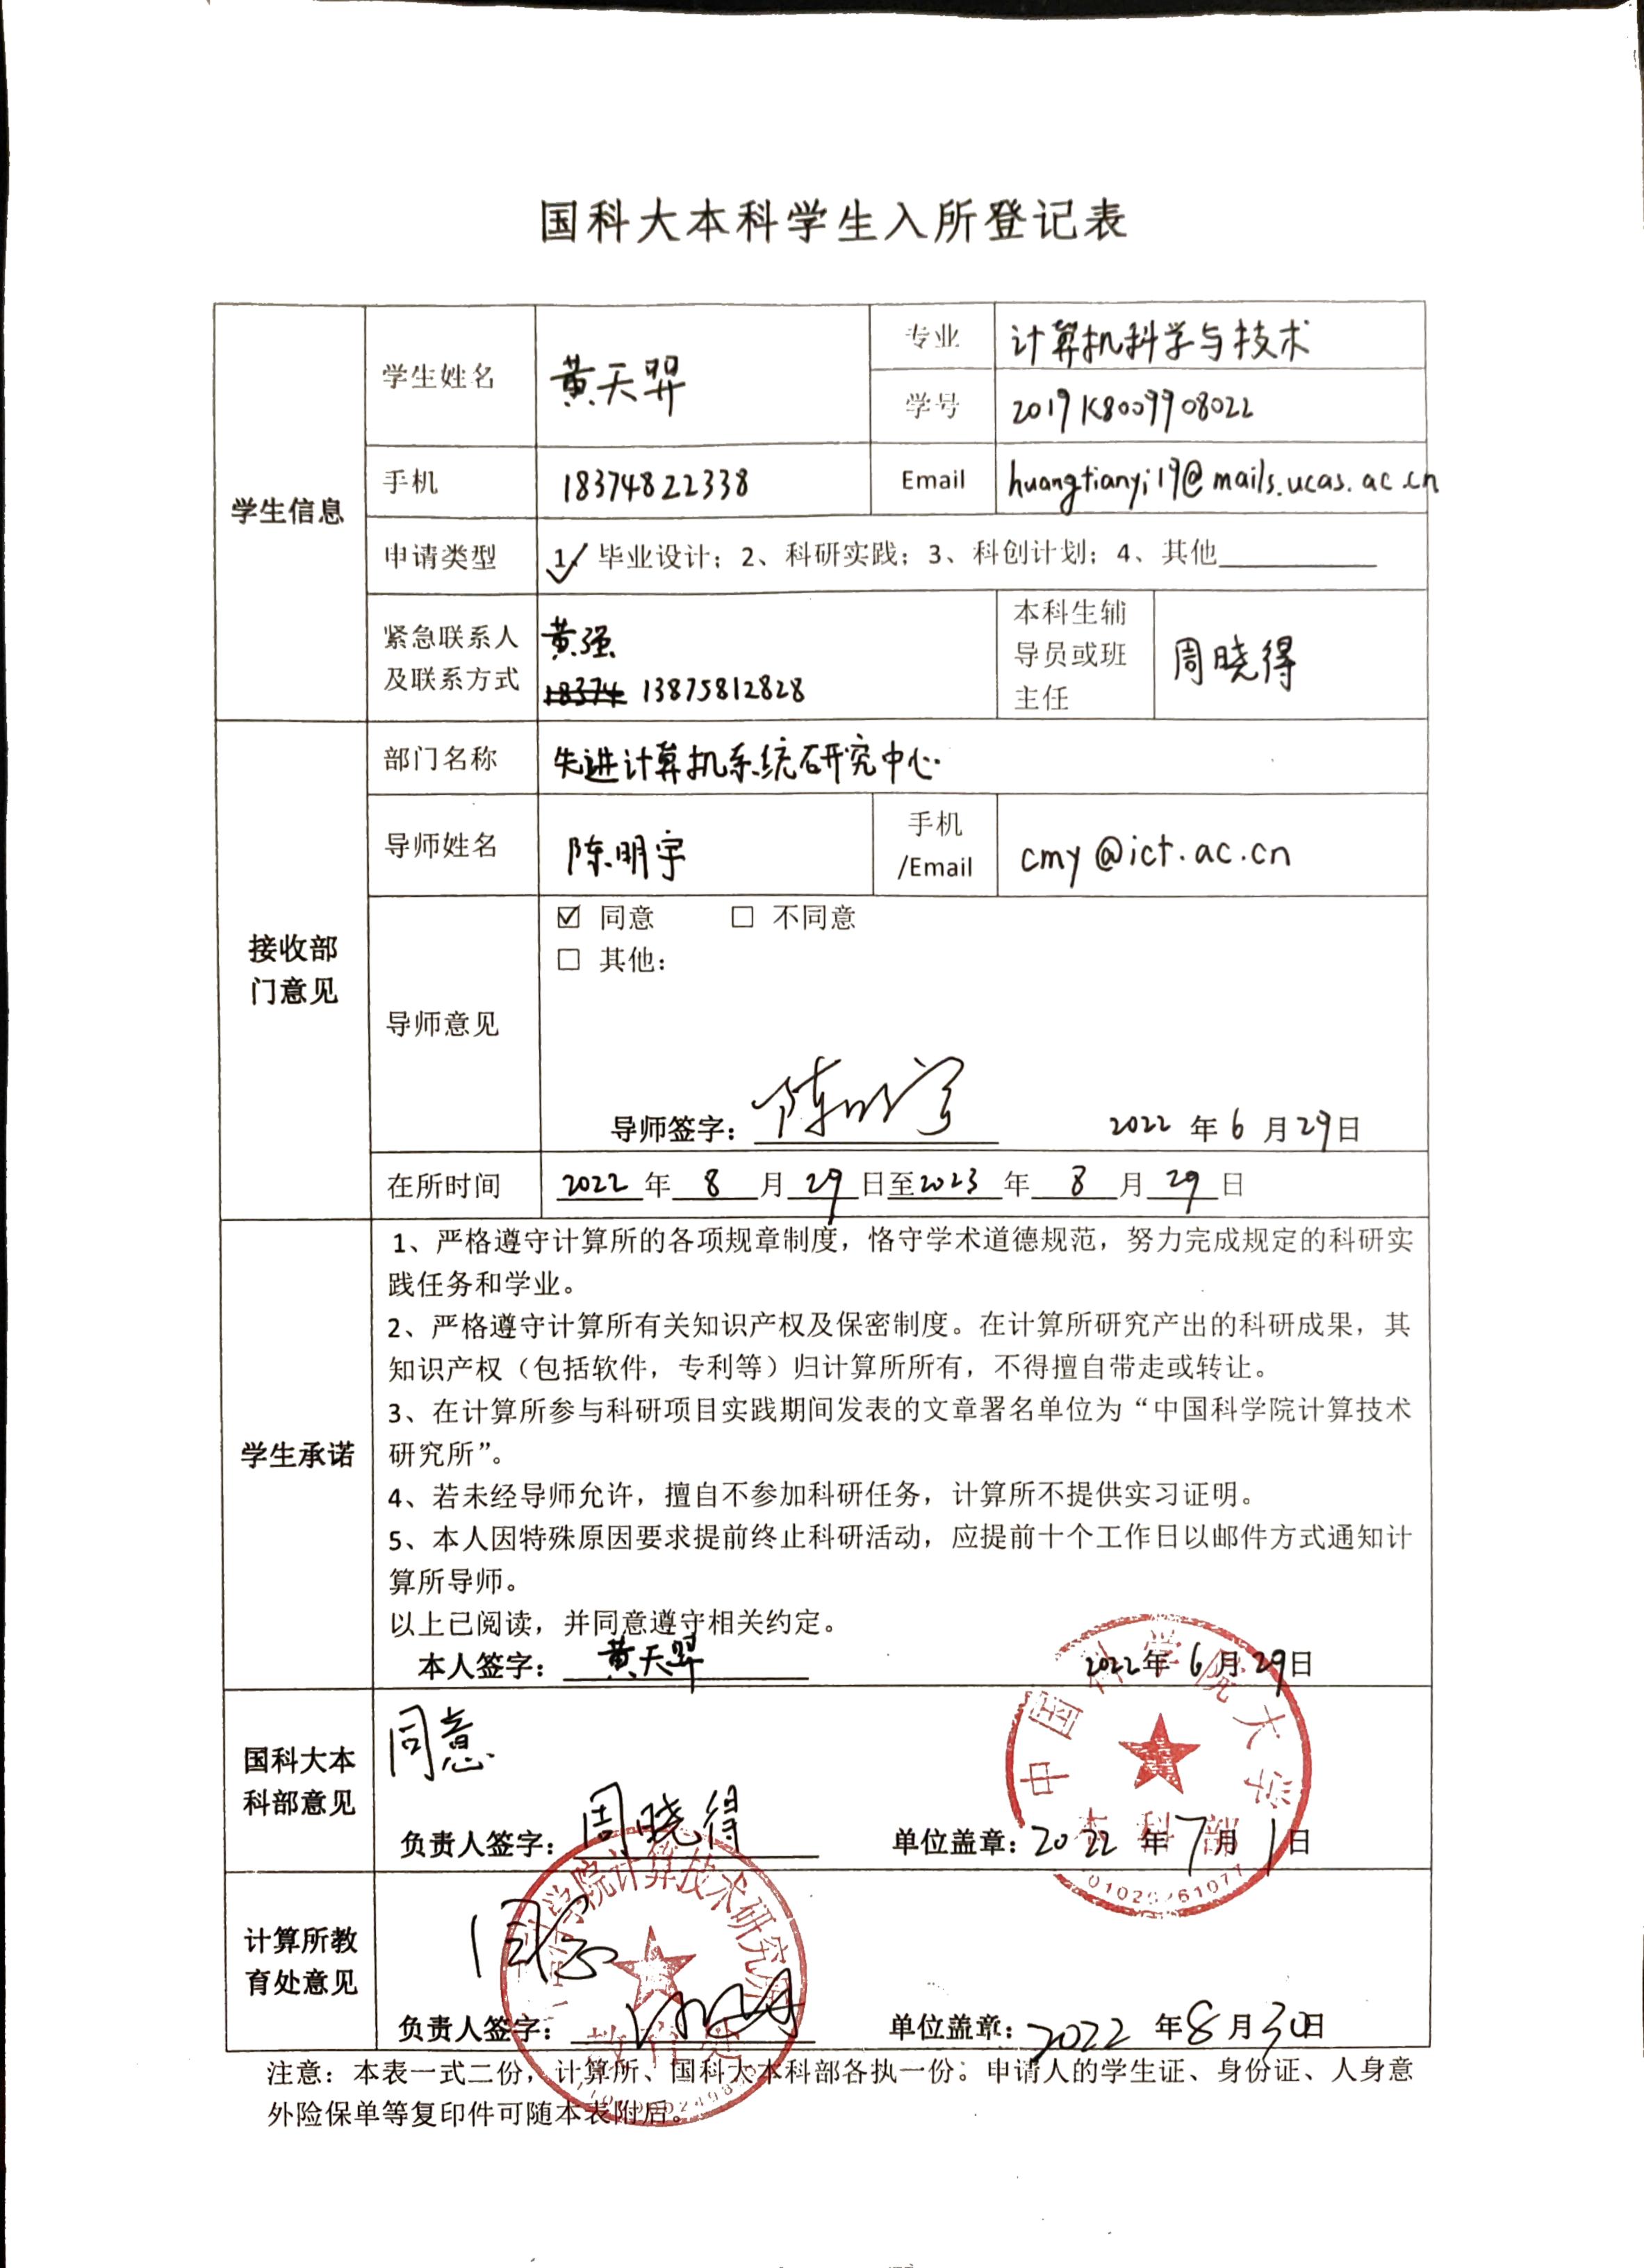 国科大本科学生入所登记表
学生信息
学生姓名
黄天羿
专业
计算机科学与技术
学号
2019K8009908022
手机
18374822338
Email
huangtianyi19@mails.ucas.ac.cn
申请类型
1、毕业设计；2、科研实践；3、科创计划；4、其他
紧急联系人
及联系方式
黄强
18374 13875812828
本科生辅
导员或班
主任
周晓得
接收部
门意见
部门名称
先进计算机系统研究中心
导师姓名
陈明宇
手机
/Email
cmy@ict.ac.cn
导师意见
☑ 同意 □ 不同意
□ 其他：
导师签字：陈明宇 2022 年 6 月 29 日
在所时间
2022 年 8 月 29 日至 2023 年 8 月 29 日
学生承诺
1、严格遵守计算所的各项规章制度，恪守学术道德规范，努力完成规定的科研实
践任务和学业。
2、严格遵守计算所有关知识产权及保密制度。在计算所研究产出的科研成果，其
知识产权（包括软件，专利等）归计算所所有，不得擅自带走或转让。
3、在计算所参与科研项目实践期间发表的文章署名单位为“中国科学院计算技术
研究所”。
4、若未经导师允许，擅自不参加科研任务，计算所不提供实习证明。
5、本人因特殊原因要求提前终止科研活动，应提前十个工作日以邮件方式通知计
算所导师。
以上已阅读，并同意遵守相关约定。
本人签字：黄天羿 2022年 6 月 29日
国科大本
科部意见
同意
负责人签字：周晓得 单位盖章：2022 年 7 月 1 日
中国科学院大学
本科部
计算所教
育处意见
同意
负责人签字： 单位盖章：2022 年 8 月 30日
学院计算技术研究所
教育处
注意：本表一式二份，计算所、国科大本科部各执一份。申请人的学生证、身份证、人身意
外险保单等复印件可随本表附后。